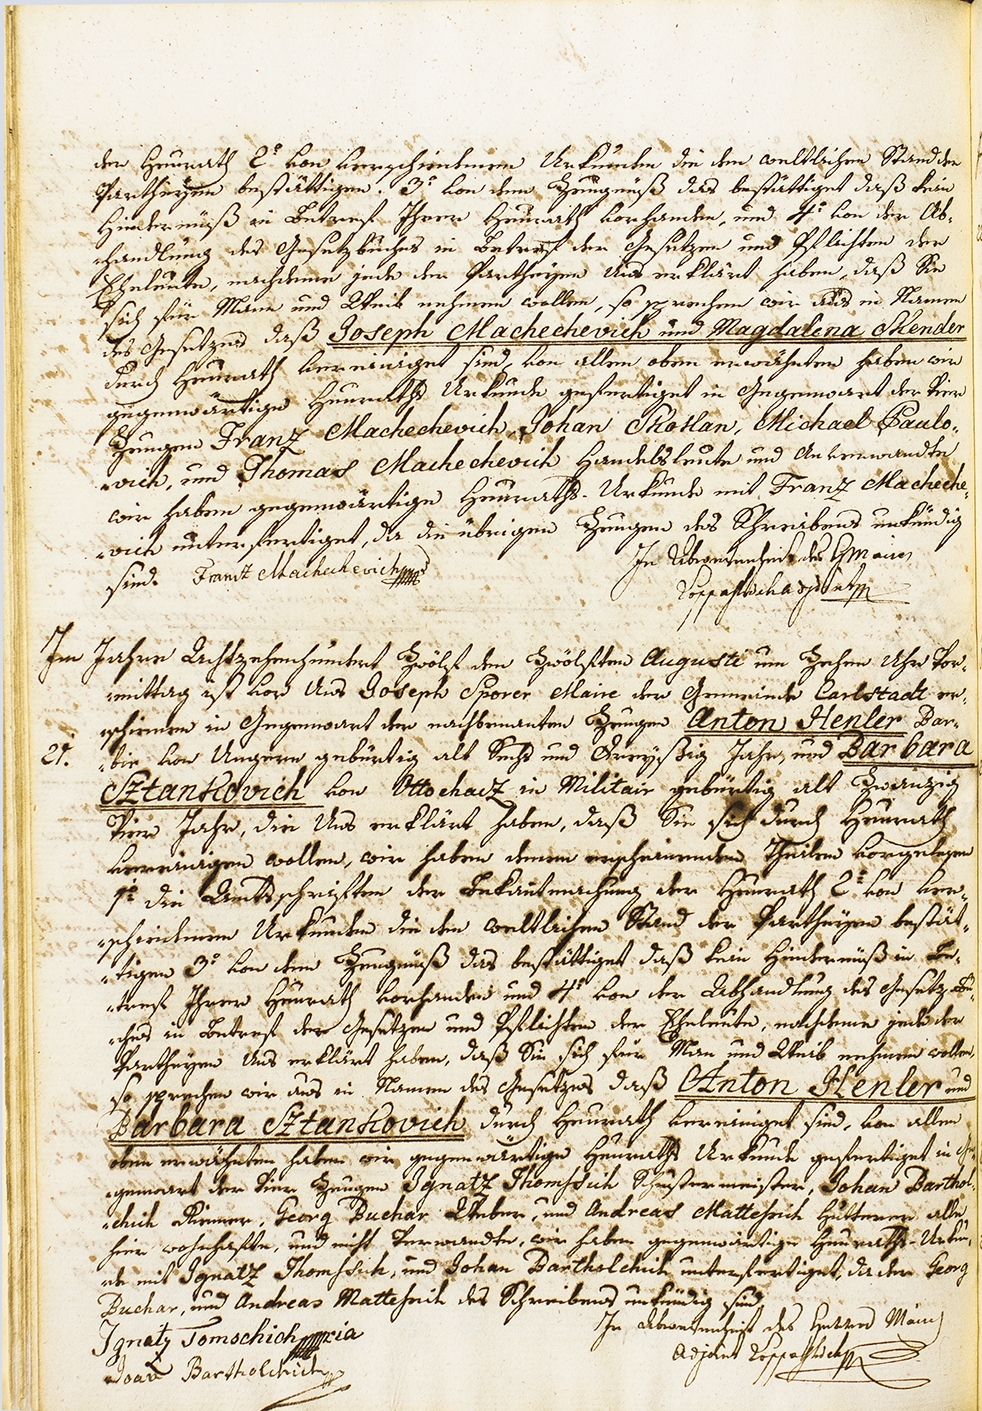 der Heurath 2º von verschiedenen Urkunden die den weltlichen Stand der
Partheyen bestättigen. 3º von dem Zeugnüß das bestättiget daß kein
Hindernüß in Betref Ihrer Heurath vorhanden, und 4º von der Ab-
-handlung des Gesetzbuches in Betref der Gesetzen und Pflichten der
Eheleute, nachdeme jede der Partheyen Uns erklärt haben, daß Sie
sich für Mann und Weib nehmen wollen, so sprechen wir aus in Namen
des Gesetzes daß Joseph Machechevich und Magdalena Skender
durch Heurath vereiniget sind, von allen oben erwähnten haben wir
gegenwärtige Heuraths Urkunde gefertiget in Gegenwart der vier
Zeugen Franz Machechevich, Johan Skotlan, Michael Paulo-
-vich, und Thomas Machechevich Handelsleute und Anverwandte
wir haben gegenwärtige Heuraths-Urkunde mit Franz Macheche-
-vich unterfertiget, da die übrigen Zeugen des Schreibens unkündig
sind. Frantz Machechevich In Abwesenheit des H Maires
Adjoint
Im Jahre Achtzehenhundert Zwölf den Zwölften Augusti um Zehen Uhr Vor-
-mittag ist vor Uns Joseph Sporer Maire der Gemeinde Carlstadt er-
-schienen in Gegenwart der nachbenanten Zeugen Anton Henler Bar-
27. -bir von Ungern gebürtig alt Sechs und Dreyßig Jahr, und Barbara
Sztankovich von Ottochacz in Militair gebürtig alt Zwanzig
Vier Jahr, die Uns erklärt haben, daß Sie sich durch Heurath
vereinigen wollen, wir haben denen erscheinenden Theilen vorgelesen
1º die Amtsschriften der Bekantmachung der Heurath 2º von ver-
-schiedenen Urkunden die den weltlichen Stand der Partheyen bestät-
-tigen 3º von dem Zeugnüß das bestättiget daß kein Hindernüß in Be-
-tref Ihrer Heurath vorhanden und 4º von der Abhandlung des Gesetz-Bu-
-ches in Betref der Gesetzen und Pflichten der Eheleute, nachdeme jede der
Partheyen Uns erklärt haben, daß Sie sich für Man und Weib nehmen wollen,
so sprechen wir aus in Namen des Gesetzes daß Anton Henler und
Barbara Sztankovich durch Heurath vereiniget sind, von allen
oben erwähnten haben wir gegenwärtige Heuraths Urkunde gefertiget in Ge-
-genwart der vier Zeugen Ignatz Thomschich Schustermeister, Johan Barthol-
-chich Riemer, Georg Buchar Weber, und Andreas Mattesich Hütterer alle
hier wohnhafte, und nicht Verwandte, wir haben gegenwärtige Heuraths-Urkun-
-de mit Ignatz Thomschich, und Johan Bartholchich unterfertiget, da der Georg
Buchar, und Andreas Mattesich des Schreibens unkündig sind
Ignatz Tomschich In Abwesenheit des Herrn Maires
Joan Bartholchich Adjoint